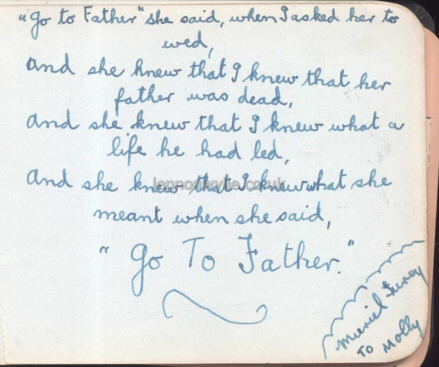 "Go to Father" she said, when I asked her to
wed,
And she knew that I knew that her
father was dead,
And she knew that I knew what a
life he had led,
And she knew that I knew what she
meant when she said,
"Go To Father."
Muriel
To Molly